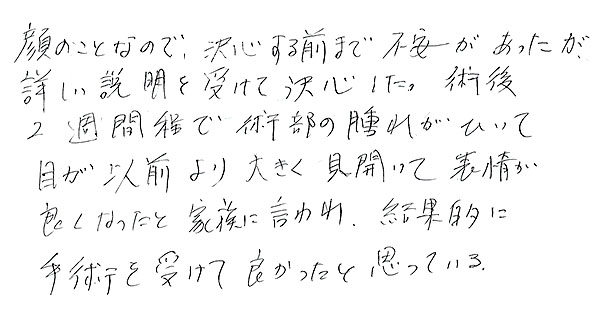 顔のことなので、決心する前まで不安があったが、
詳しい説明を受けて決心した。術後
2週間程で術部の腫れがひいて
目が以前より大きく見開いて表情が
良くなったと家族に言われ、結果的に
手術を受けて良かったと思っている。